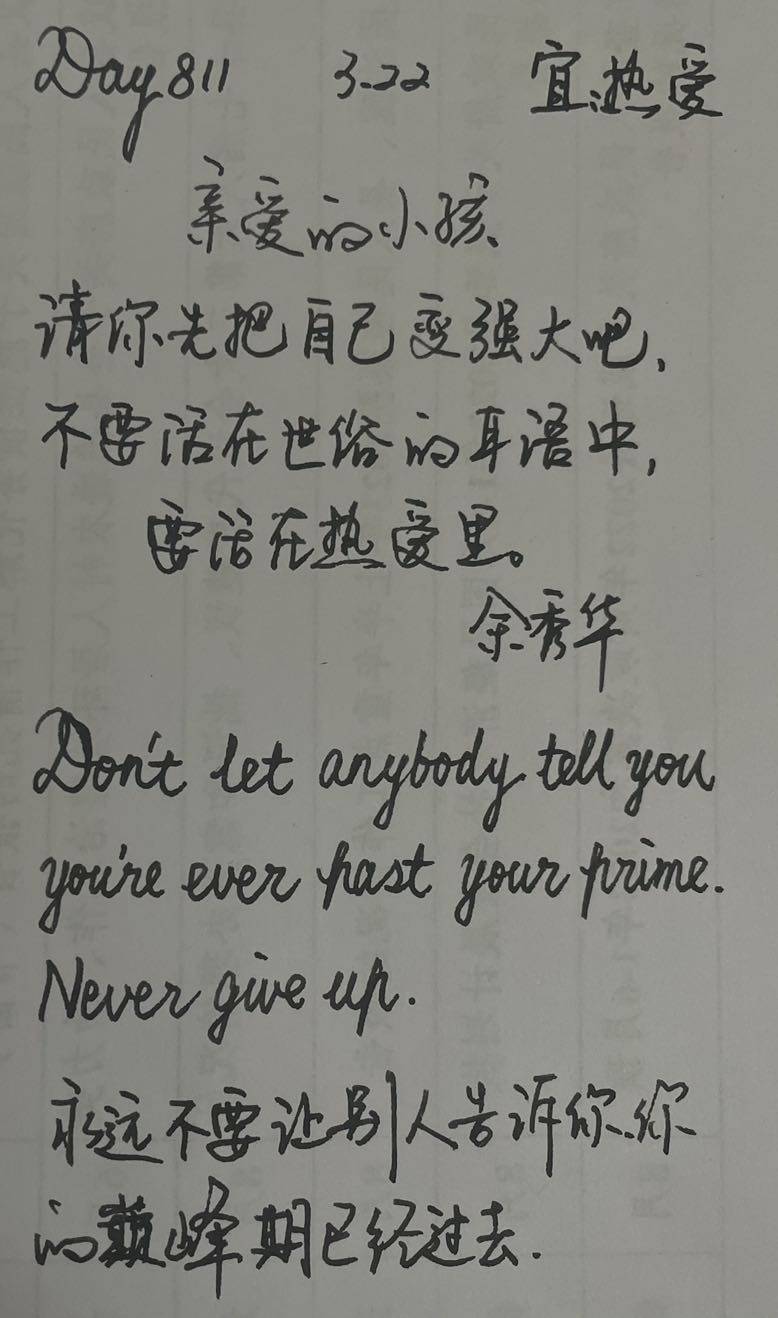 Day 811 3-22 宜热爱
亲爱的小孩、
请你先把自己变强大吧,
不要活在世俗的耳语中,
要活在热爱里。
余秀华
Don't let anybody tell you
you're ever past your prime.
Never give up.
永远不要让别人告诉你,你
的巅峰期已经过去.